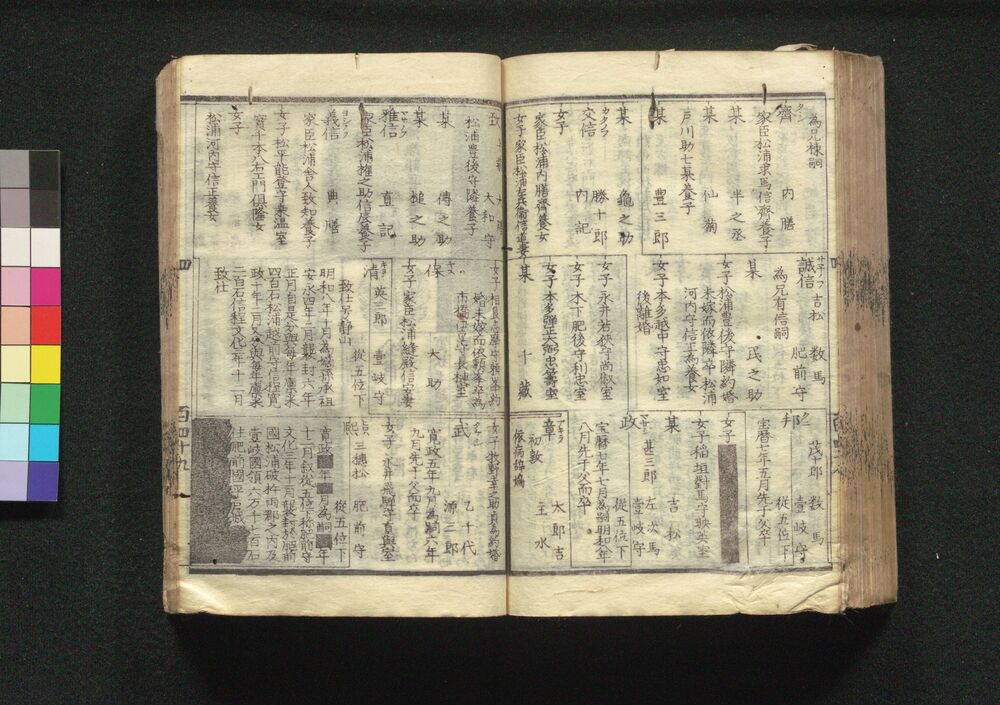 為兄棟嗣
齊 内膳
家臣松浦求馬信齊養子
某 半之丞
某 仙菊
戸川助七某養子
某 豊三郎
某 龜之助
交信 勝十郎 内記
女子
家臣松浦内膳齊養女
女子家臣松浦左兵衛信道妻
誠信 吉松 数馬 肥前守
為兄有信嗣
某 民之助
女子松浦豊後守隣約婚
未嫁而依隣卒松浦
河内守信正為養女
女子本多越中守忠如室
後離婚
女子永井若狭守尚淑室
女子木下肥後守利忠室
女子本多彈正大弼忠籌室
某 千藏
邦 茂十郎 数馬 壹岐守 從五位下
宝曆七年五月先于父卒
女子
女子稲垣對馬守暎英室
某 吉松
政 甚三郎 左次馬 壹岐守 從五位下
宝曆七年七月為嗣明和八年
八月先于父而卒
章 太郎吉 主水
初敦
政 大和守
松浦豊後守隣養子
某 傳之助
某 槌之助
雅信 直記
家臣松浦権之助信辰養子
義信 典膳
家臣松浦舎人致知養子
女子松平能登守乗温室
寳千本八左エ門倶隆女
女子
松浦河内守信正養女
保 大助
女子家臣松浦縫殿信安妻
清 英三郎 壹岐守 從五位下
致仕号静山
明和八年十月為嫡孫承祖
安永四年二月襲封六年
正月自是分與毎年廩米
四百石松浦越前守信程寛
政十年二月又分與毎年廩米
二百石信程文化三年十一月
致仕
武 乙千代 源三郎
寛政五年九月為嗣六年
九月先于父而卒
女子永井飛騨守直與室
熙 三穂松 肥前守 從五位下
十二月叙從五位下称肥前守
文化三年十一月襲封於肥前
國松浦彼杵兩郡之内及
壹岐國領六万千七百石
住肥前國平戸城
百四十九